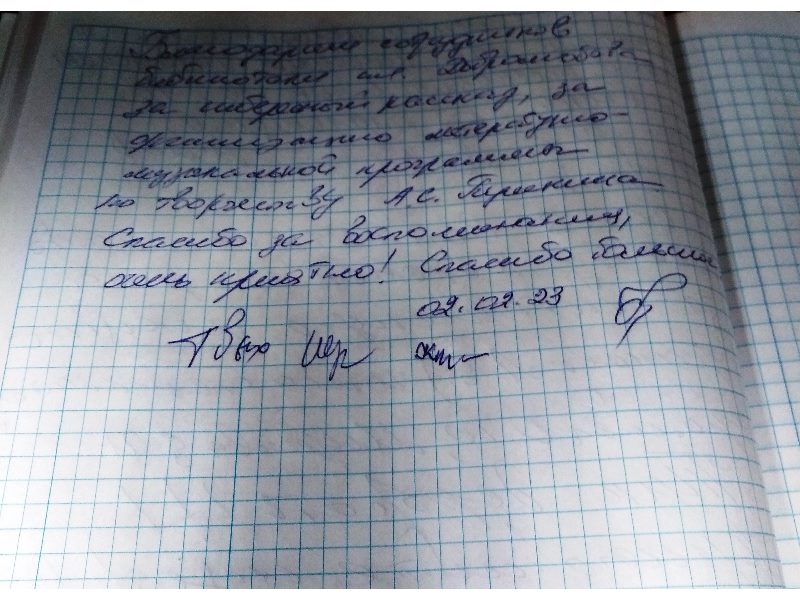 Благодарим сотрудников
библиотеки им. Добролюбова
за интересный рассказ, за
организацию литературно-
музыкальной программы
по творчеству А.С. Пушкина
Спасибо за воспоминания,
очень приятно! Спасибо большое
02.02.23